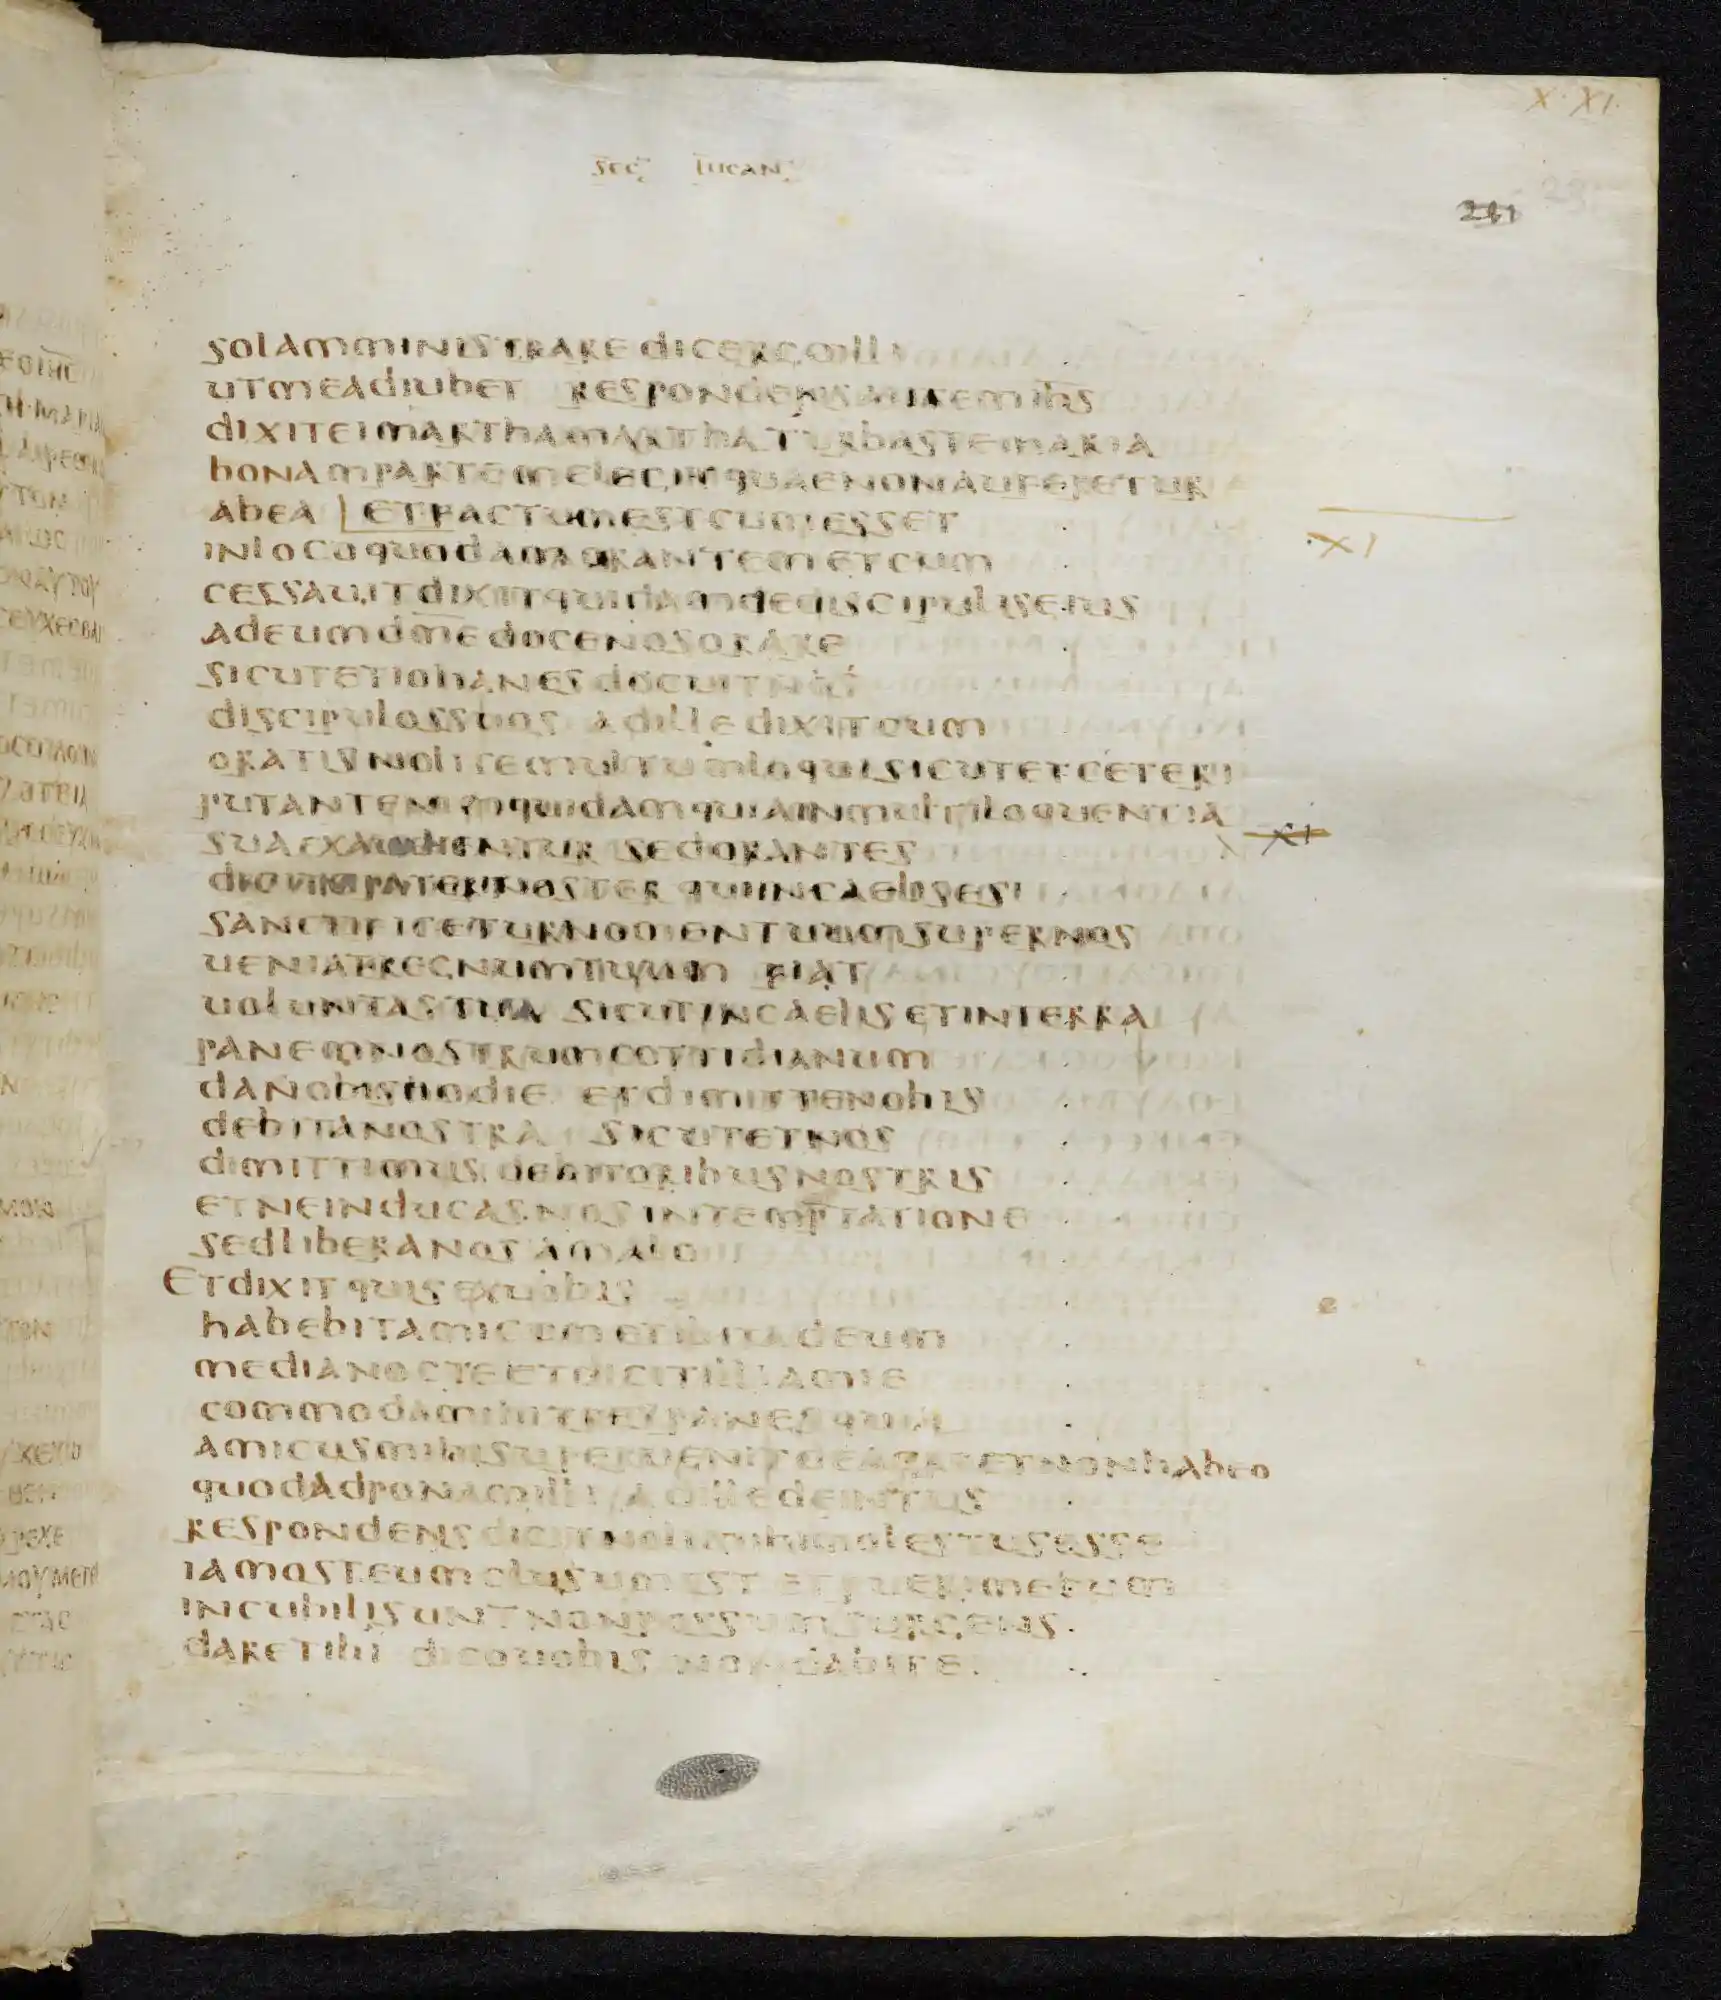 X·XI·
SEC LUCAN
241
SOLAMMINISTRAREDICERGOILLI
UTMEADIUBET RESPONDENSAUTEMIHS
DIXITEIMARTHAMARTHATURBASTEMARIA
BONAMPARTEMELEGITQUAENONAUFERETUR
ABEA ETFACTUMESTCUMESSET
INLOCOQUODAMORANTEMETCUM
CESSAUITDIXITQUIDAMDEDISCIPULISEIUS
ADEUMDMEDOCENOSORARE
SICUTETIOHANESDOCUIT
DISCIPULOSSUOS ADILLEDIXITCUM
ORATISNOLITEMULTUMLOQUISICUTETCETERI
PUTANTENIMQUIDAMQUIAINMULTILOQUENTIA
SUAEXAUDIENTUR SEDORANTES
DICITE PATERNOSTER QUIINCAELISES
SANCTIFICETURNOMENTUUMSUPERNOS
UENIATREGNUMTUUM FIAT
UOLUNTASTUA SICUTINCAELISETINTERRA
PANEMNOSTRUMCOTTIDIANUM
DANOBISHODIE ETDIMITTENOBIS
DEBITANOSTRA SICUTETNOS
DIMITTIMUSDEBITORIBUSNOSTRIS
ETNEINDUCASNOSINTEMPTATIONE
SEDLIBERANOSAMALO
ETDIXITQUISEXUOBIS
HABEBITAMICUMETIBITADEUM
MEDIANOCTEETDICITILLIAMICE
COMMODAMIHITRESPANESQUIA
AMICUSMIHISUPERUENITDEAGROETNONHABEO
QUODADPONAMILLI ADILLEDEINTUS
RESPONDENSDICITNOLIMIHIMOLESTUSESSE
IAMOSTEUMCLUSUMEST ETPUERIMECUM
INCUBILISUNTNONPOSSUMSURGENS
DARETIBI DICOUOBIS NONDABITE
XI
XI